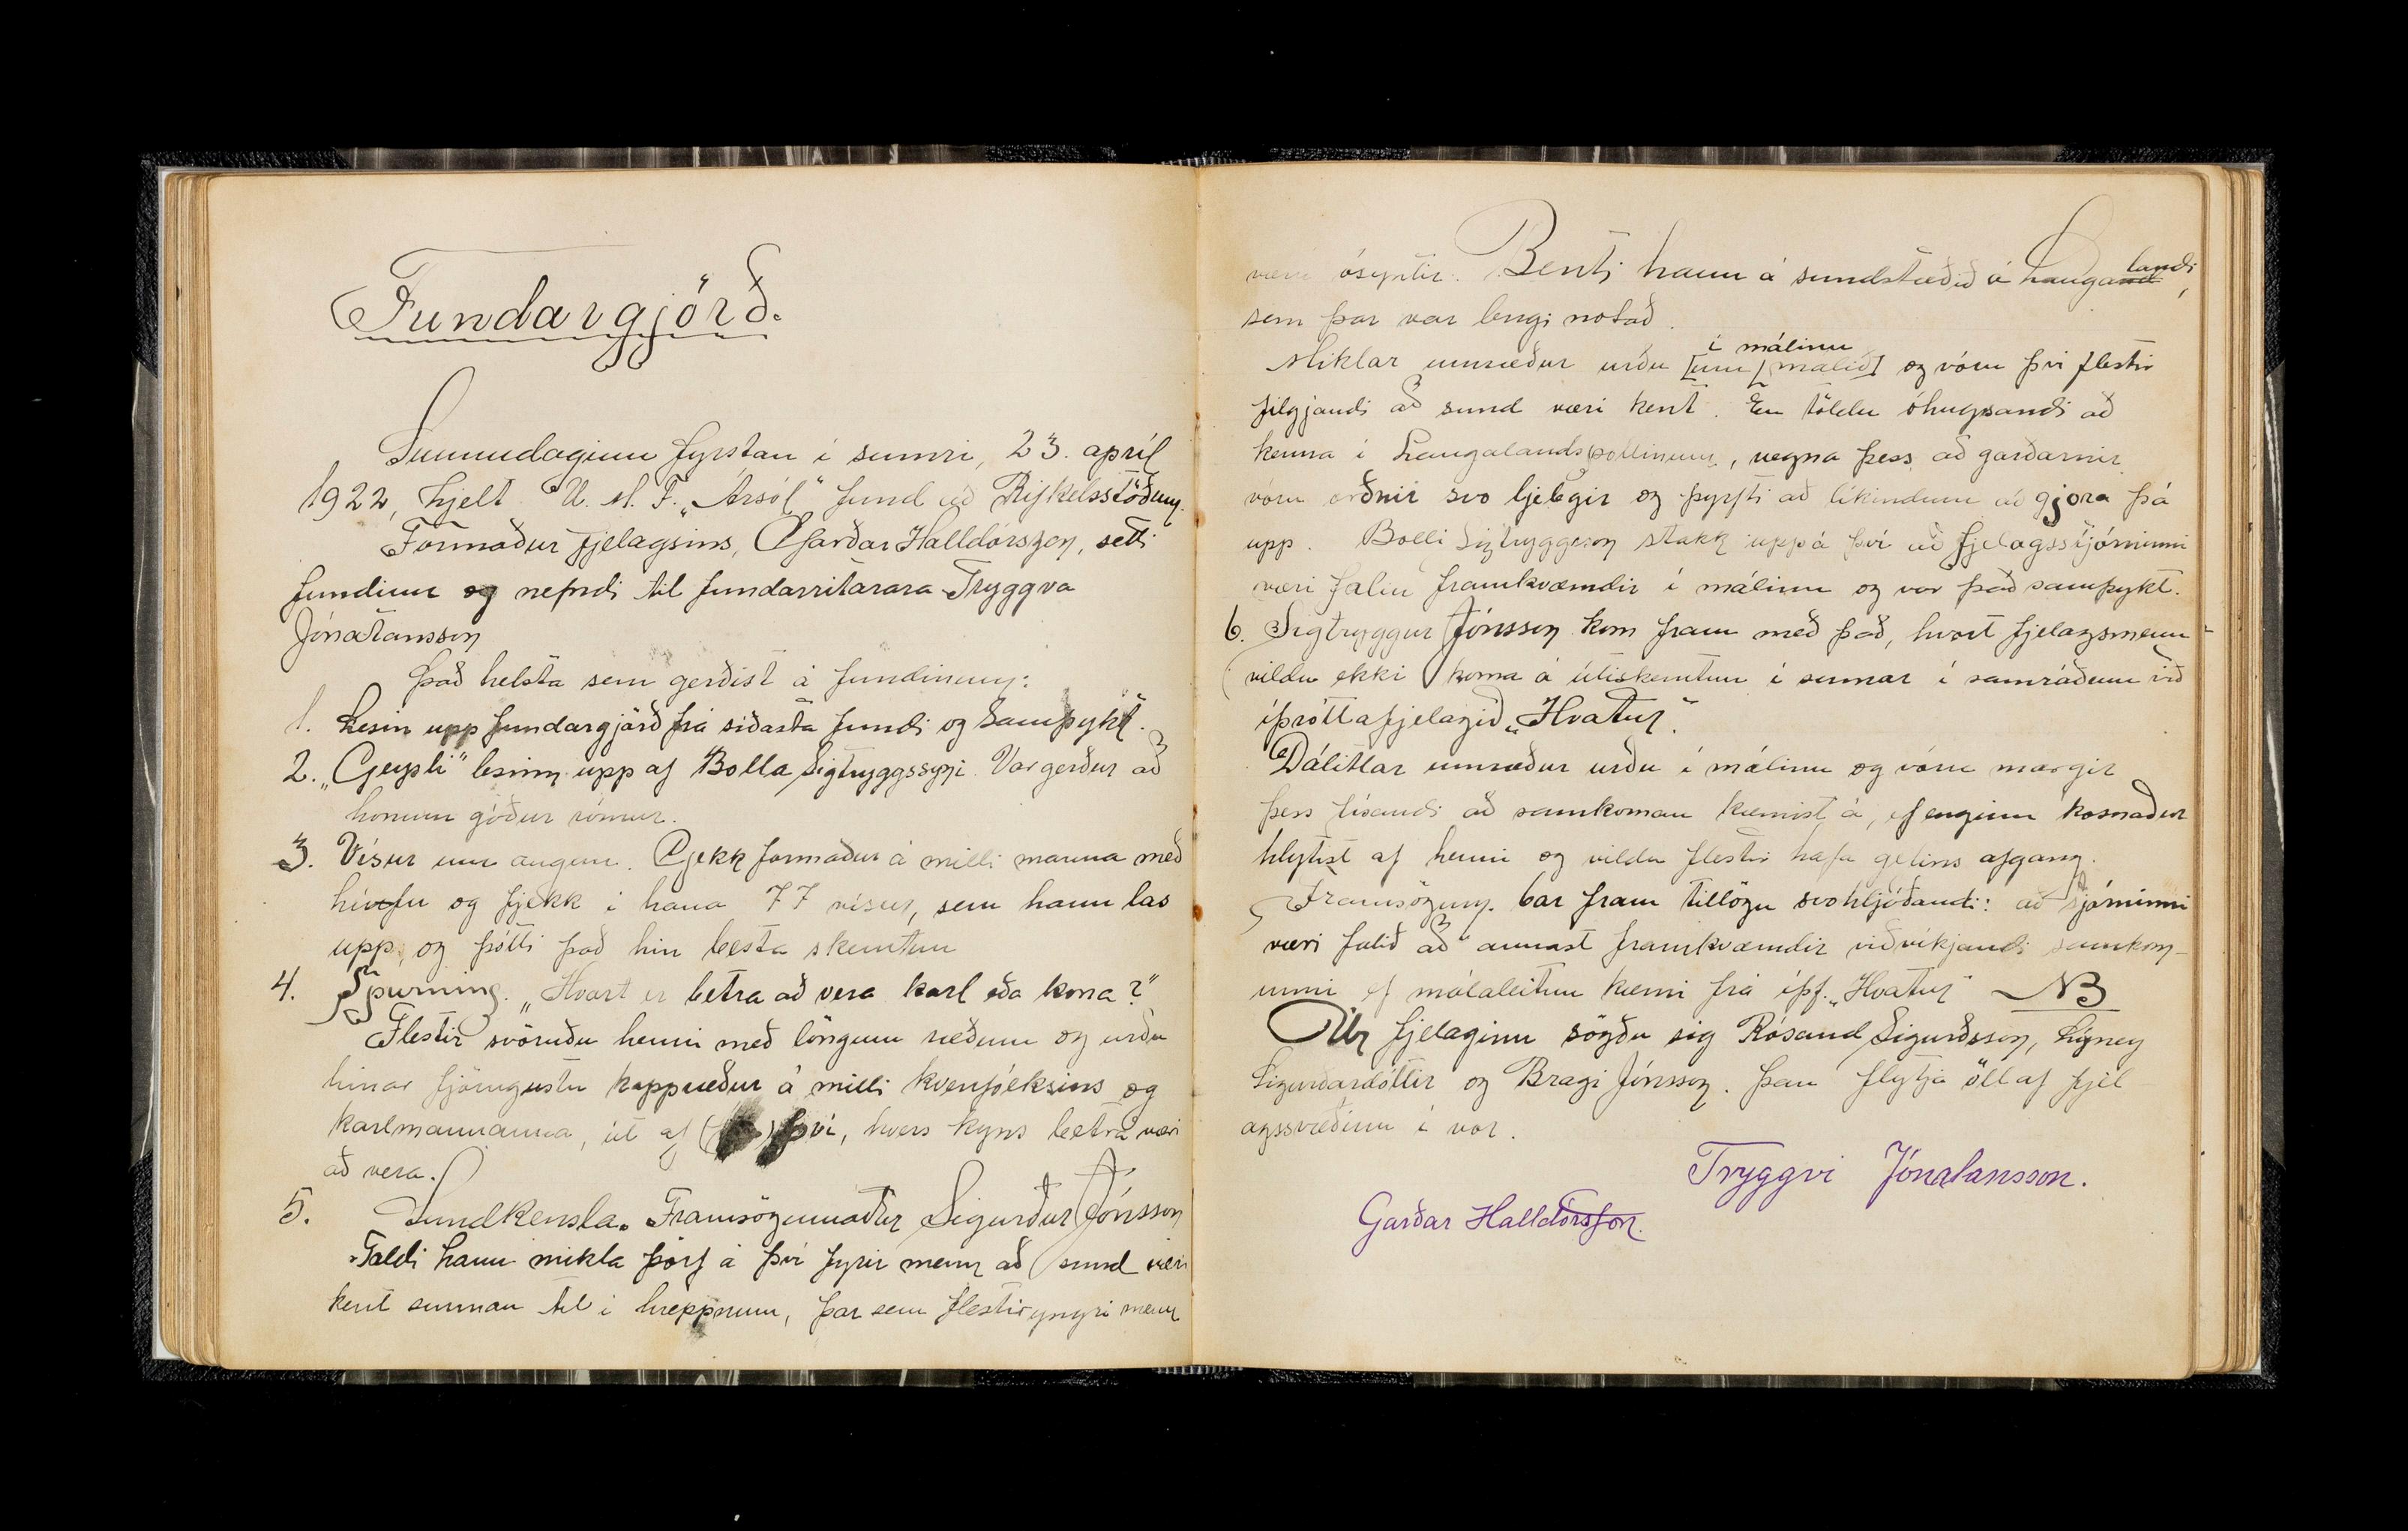 Fundargjörð.
Sunnudaginn fyrstan í sumri, 23. apríl
1922, hjelt U. M. F. „Ársól“ fund að Rifkelsstöðum.
Formaður fjelagsins, Garðar Halldórsson, setti
fundinn og nefndi til fundarritarara Tryggva
Jónatansson
Það helsta sem gerðist á fundinum:
1. Lesin upp fundargjörð frá síðasta fundi og samþykt.
2. „Geysli“ lesinn upp af Bolla Sigtryggssyni. Var gerður að
honum góður rómur.
3. Vísur um augun. Gjekk formaður á milli manna með
húfu og fjekk í hana 77 vísur, sem hann las
upp, og þótti það hin besta skemtun
4. Spurning. „Hvort er betra að vera karl eða kona?“
Flestir svöruðu henni með löngum ræðum og urðu
hinar fjörugustu kappræður á milli kvenfólksins og
karlmannanna, út af því, hvers kyns betra væri
að vera.
5. Sundkensla. Framsögumaður Sigurður Jónsson
Taldi hann mikla þörf á því fyrir menn að sund væri
kent sunnan til í hreppnum, þar sem flestir yngri menn
væru ósyntir. Benti hann á sundstæðið á Laugalandi,
sem þar var lengi notað.
Miklar umræður urðu [um málið] í málinu og vóru því flestir
filgjandi að sund væri kent. En töldu óhugsandi að
kenna í Laugalandspollinum, vegna þess að garðarnir
vóru orðnir svo ljelegir og þyrfti að líkindum að gjöra þá
upp. Bolli Sigtryggsson stakk uppá því að fjelagsstjórninni
væri falin framkvæmdir í málinu og var það samþykt.
6. Sigtryggur Jónsson kom fram með það, hvort fjelagsmenn
vildu ekki koma á útiskemtun í sumar í samráðum við
íþróttafjelagið „Hvatur“.
Dálitlar umræður urðu í málinu og vóru margir
þess fúsandi að samkoman kæmist á, ef enginn kosnaður
hlytist af henni og vildu flestir hafa gefins afgang.
Framsögum. bar fram tillögu svohljóðandi: að stjórninni
væri falið að annast framkvæmdir viðvíkjandi samkom-
unni ef málaleitun kæmi frá íþf. „Hvatur“ NB
Úr fjelaginu sögðu sig Rósand Sigurðsson, Signey
Sigurðardóttir og Bragi Jónsson. Þau flytja öll af fjel
agssvæðinu í vor.
Tryggvi Jónatansson.
Garðar Halldórsson.